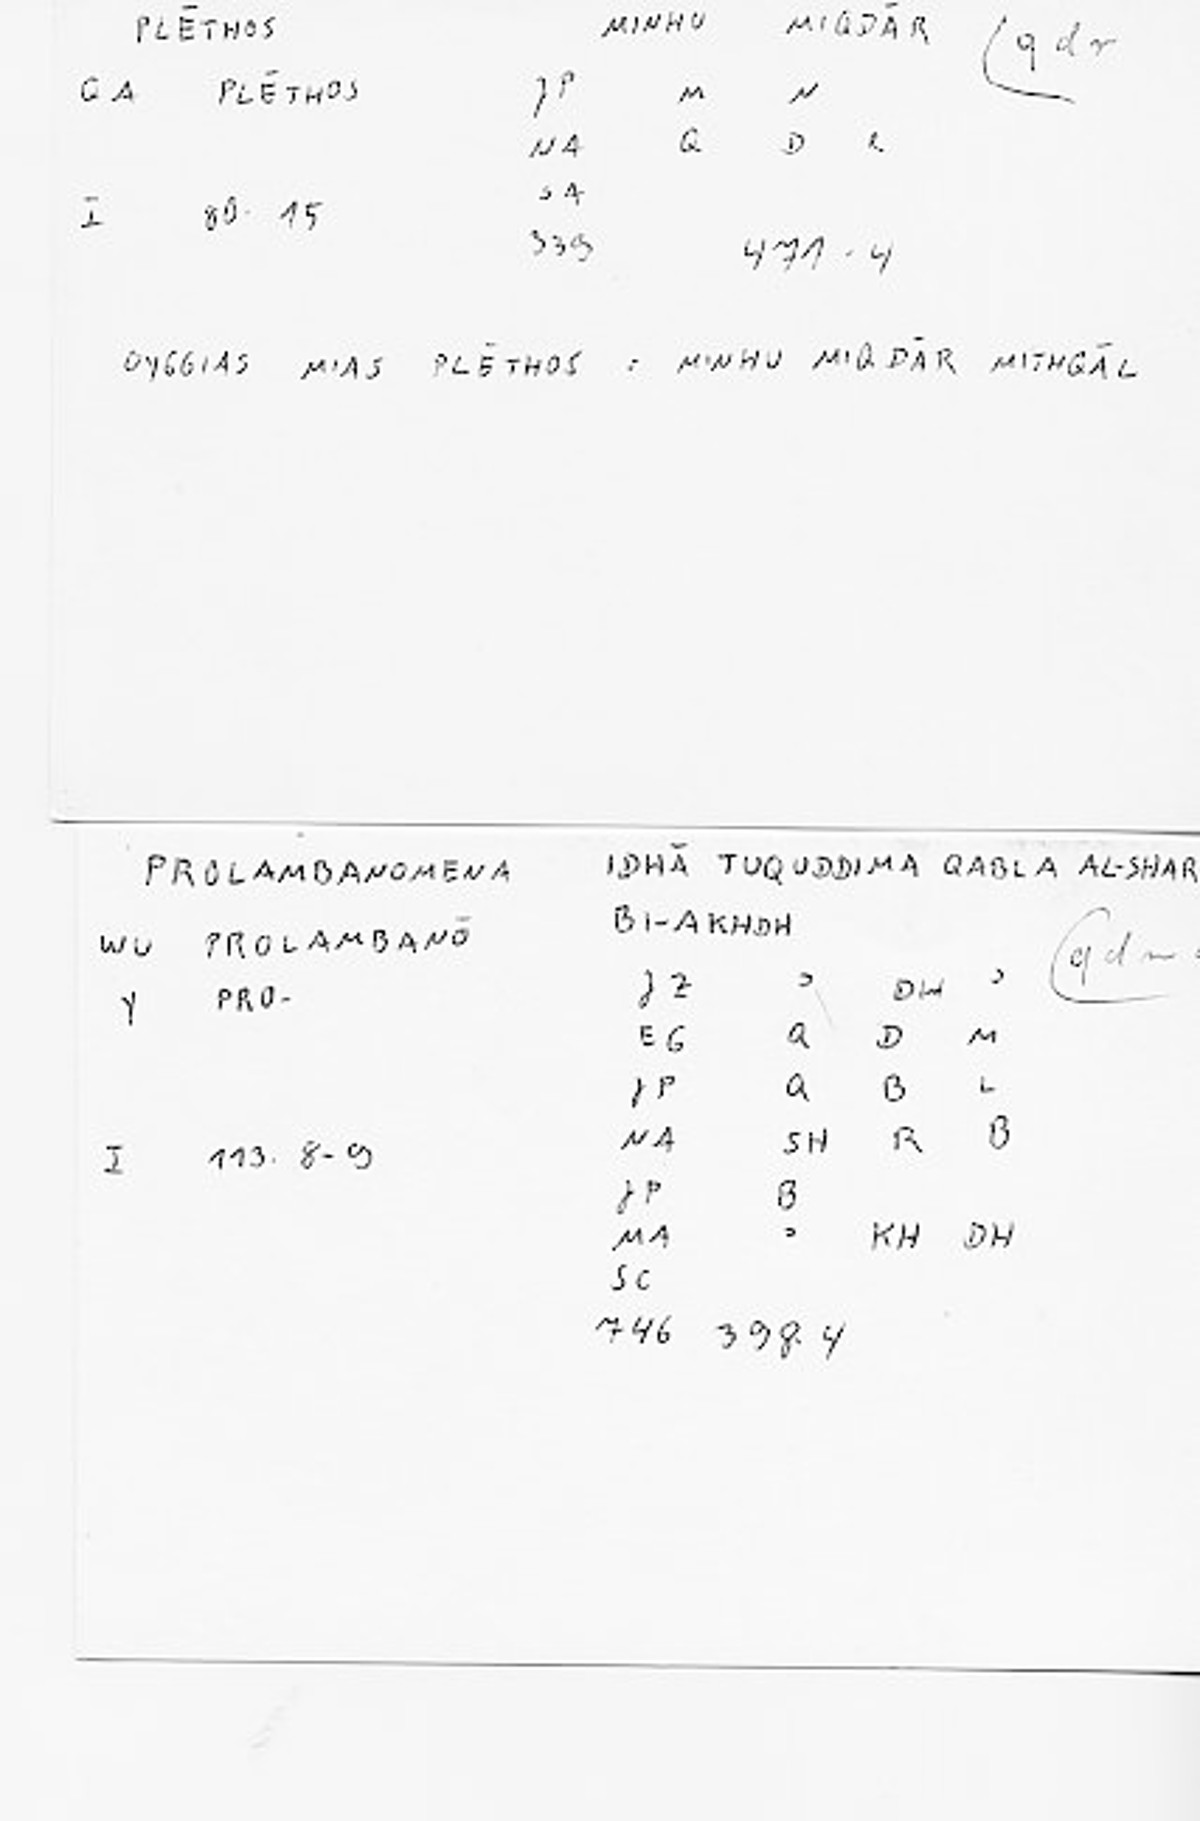 PLĒTHOS MINHU MIQDĀR (qdr
QA PLĒTHOS JP M N
NA Q D R
SA
I 80. 15
339 471.4
OYGGIAS MIAS PLĒTHOS : MINHU MIQDĀR MITHQĀL
PROLAMBANOMENA IDHĀ TUQUDDIMA QABLA AL-SHAR
WU PROLAMBANŌ BI-AKHDH
(qdm
Y PRO- JZ ʾ DH ʾ
EG Q D M
JP Q B L
I 113. 8-9 NA SH R B
JP B
MA ʾ KH DH
SC
746 398.4